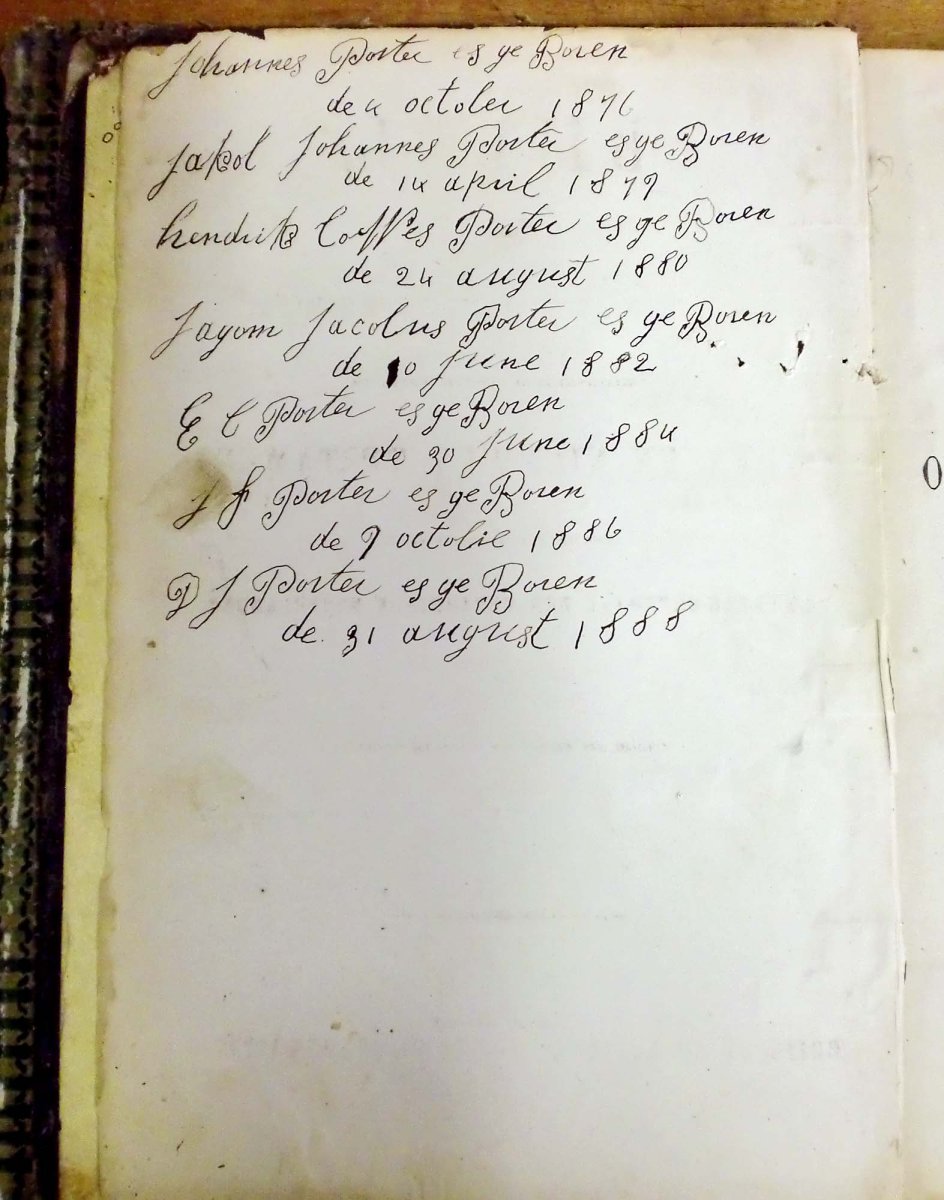 Johannes Porter es ge Boren
de 4 octoler 1876
Jakol Johannes Porter es ge Boren
de 14 april 1879
hendrik Porter es ge Boren
de 24 august 1880
Jacolus Porter es ge Boren
de 10 June 1882
E C Porter es ge Boren
de 30 June 1884
J Porter es ge Boren
de 9 octolie 1886
D J Porter es ge Boren
de 31 august 1888